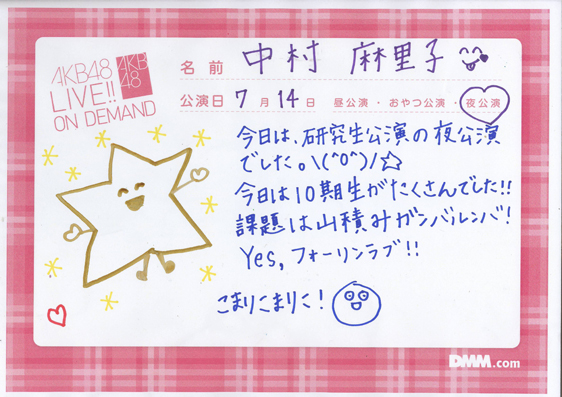 AKB48
LIVE!!
ON DEMAND
AKB
48
名前 中村 麻里子
公演日 7月14日 昼公演・おやつ公演・夜公演
今日は、研究生公演の夜公演
でした。\(^0^)/☆
今日は10期生がたくさんでした!!
課題は山積みガンバルンバ!
Yes, フォーリンラブ!!
こまりこまりこ!
DMM.com